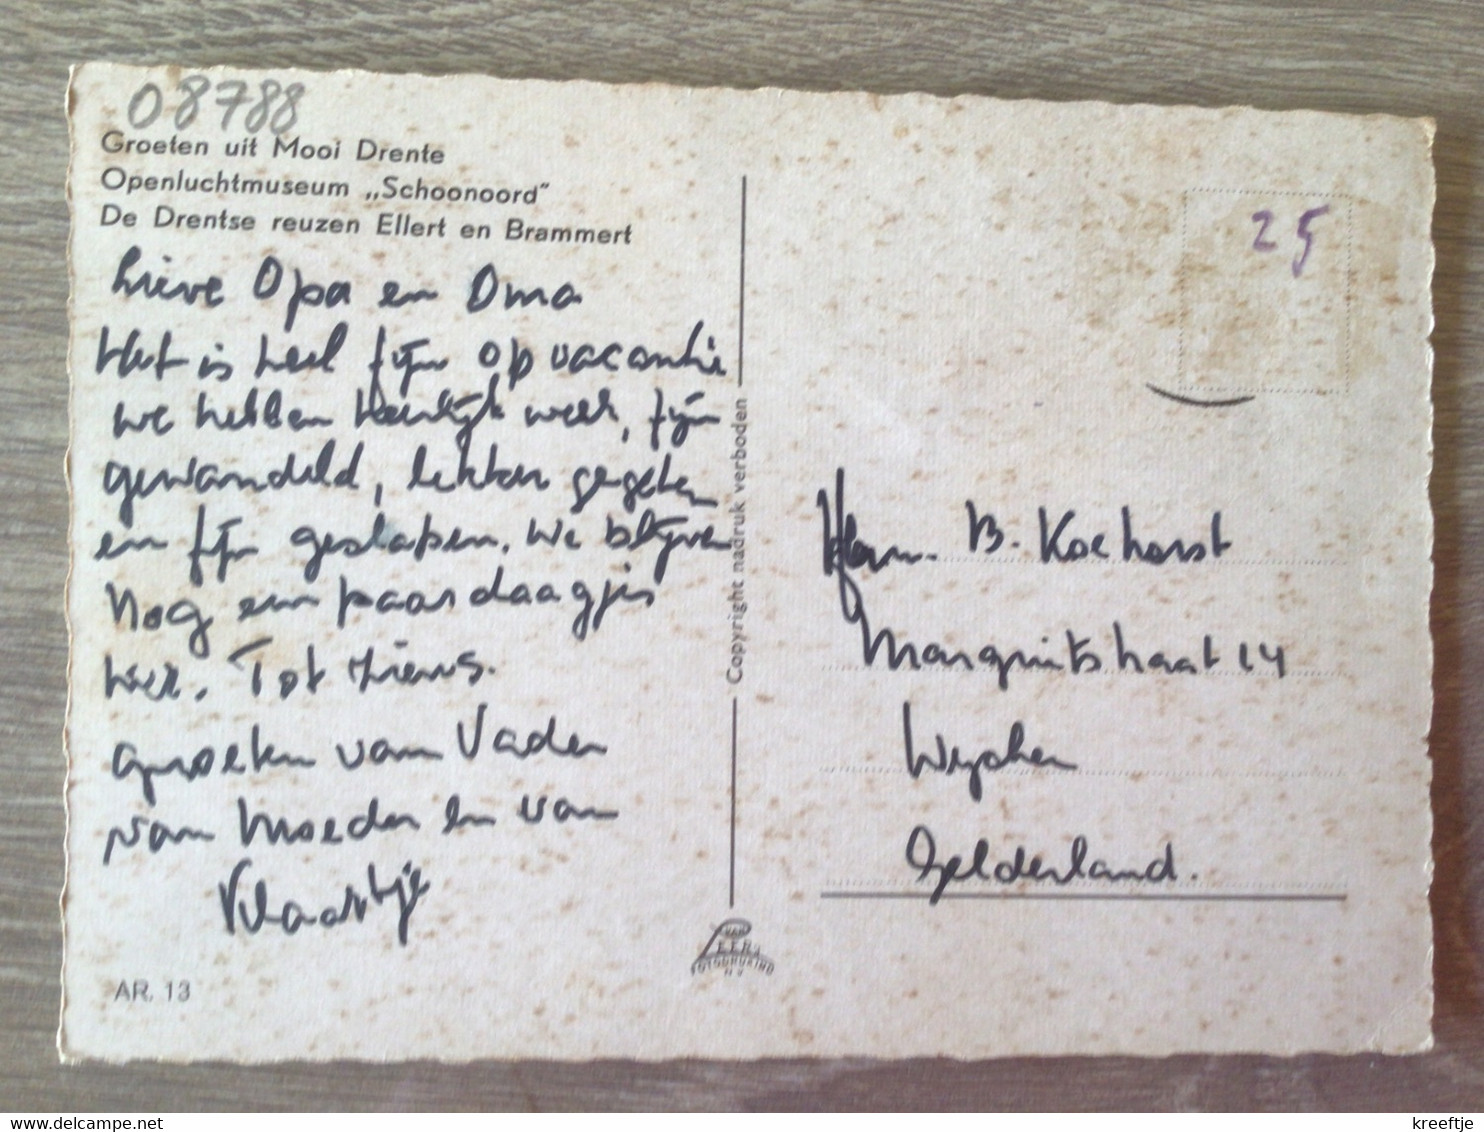 08788
Groeten uit Mooi Drente
Openluchtmuseum „Schoonoord"
De Drentse reuzen Ellert en Brammert
Lieve Opa en Oma
Het is heel fijn op vacantie
we hebben heerlijk weer, fijn
gewandeld, lekker gegeten
en fijn geslapen. We blijven
nog een paar daagjes
hier. Tot ziens.
groeten van Vader
van Moeder en van
AR. 13
Copyright nadruk verboden
VAN
LEER
25
Fam. B. Koehorst
Margrietstraat 14
Wijchen
Gelderland.
delcampe.net
kreeftje